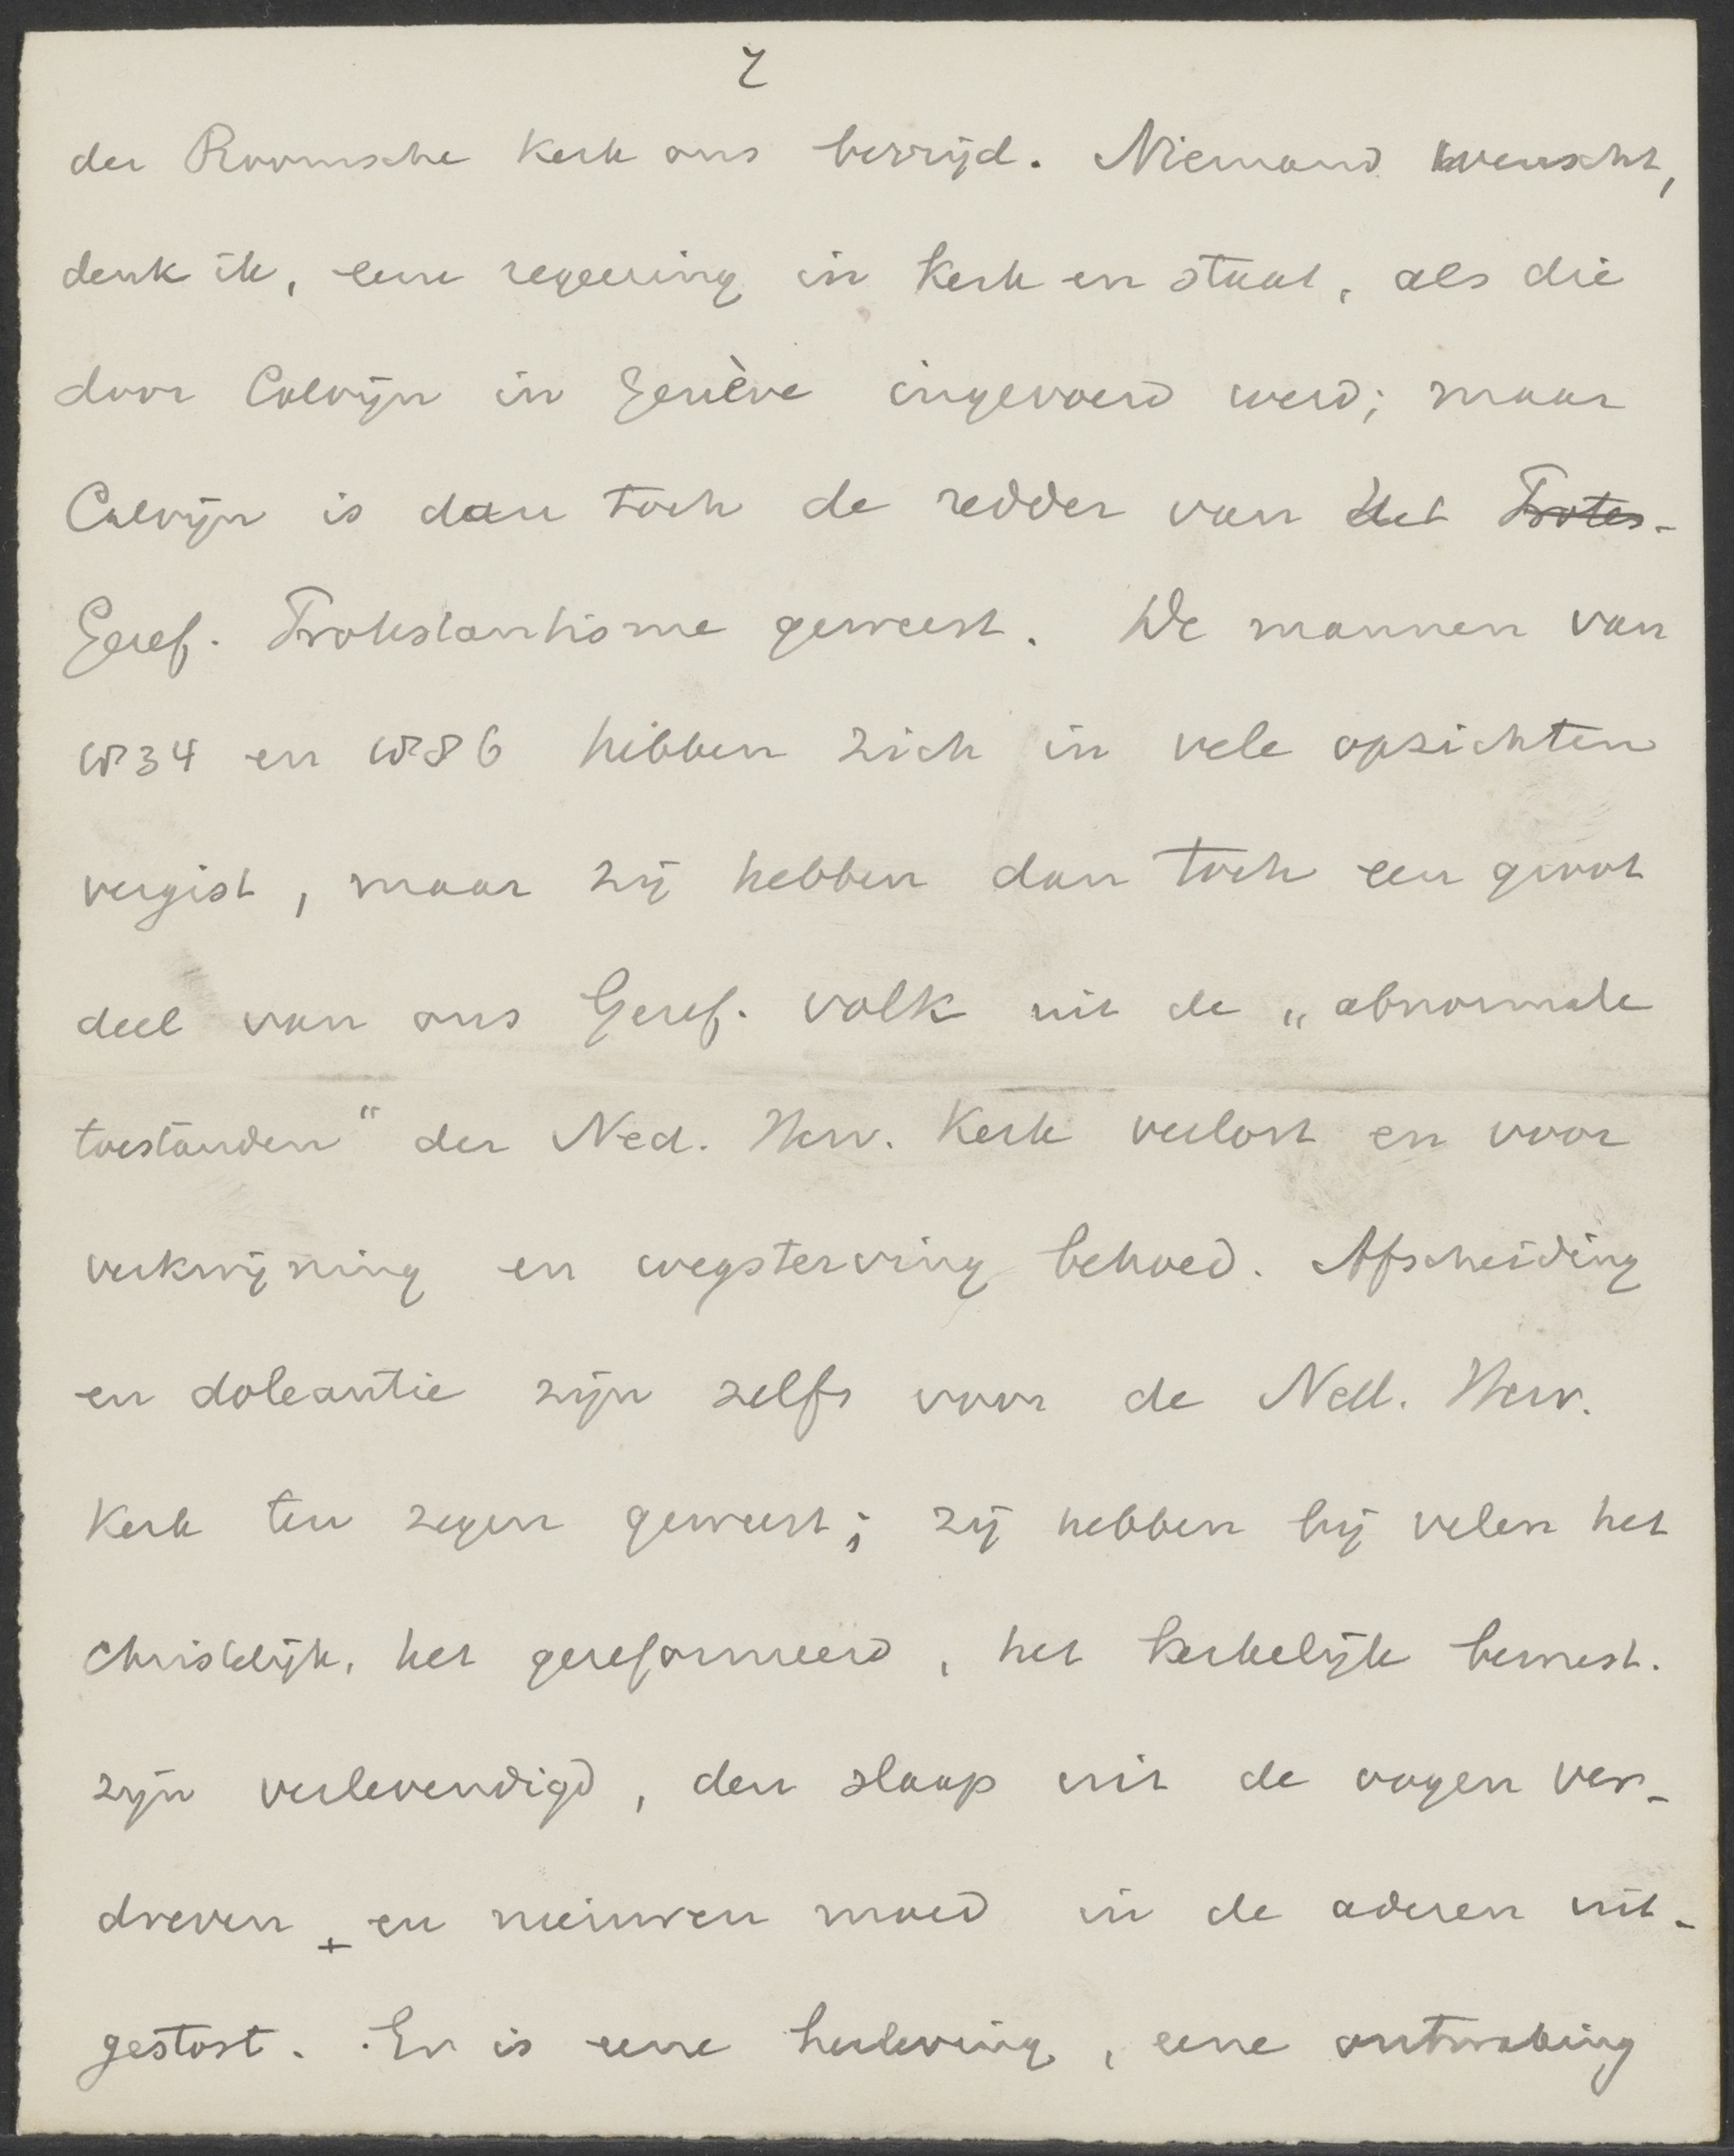 7
der Roomsche Kerk ons bevrijd. Niemand wenscht,
denk ik, eene regeering in Kerk en staat, als die
door Calvijn in Genève ingevoerd werd; maar
Calvijn is dan toch de redder van het Protes-
Geref. Protestantisme geweest. De mannen van
1834 en 1886 hebben zich in vele opzichten
vergist, maar zij hebben dan toch een groot
deel van ons Geref. volk uit de „abnormale
toestanden" der Ned. Herv. Kerk verlost en voor
verkwijning en wegsterving behoed. Afscheiding
en doleantie zijn zelfs voor de Ned. Herv.
Kerk ten zegen geweest; zij hebben bij velen het
Christelijk, het gereformeerd, het kerkelijk bewust.
zijn verlevendigd, den slaap uit de oogen ver-
dreven + en nieuwen moed in de aderen uit-
gestort. Er is eene herleving, eene ontwaking